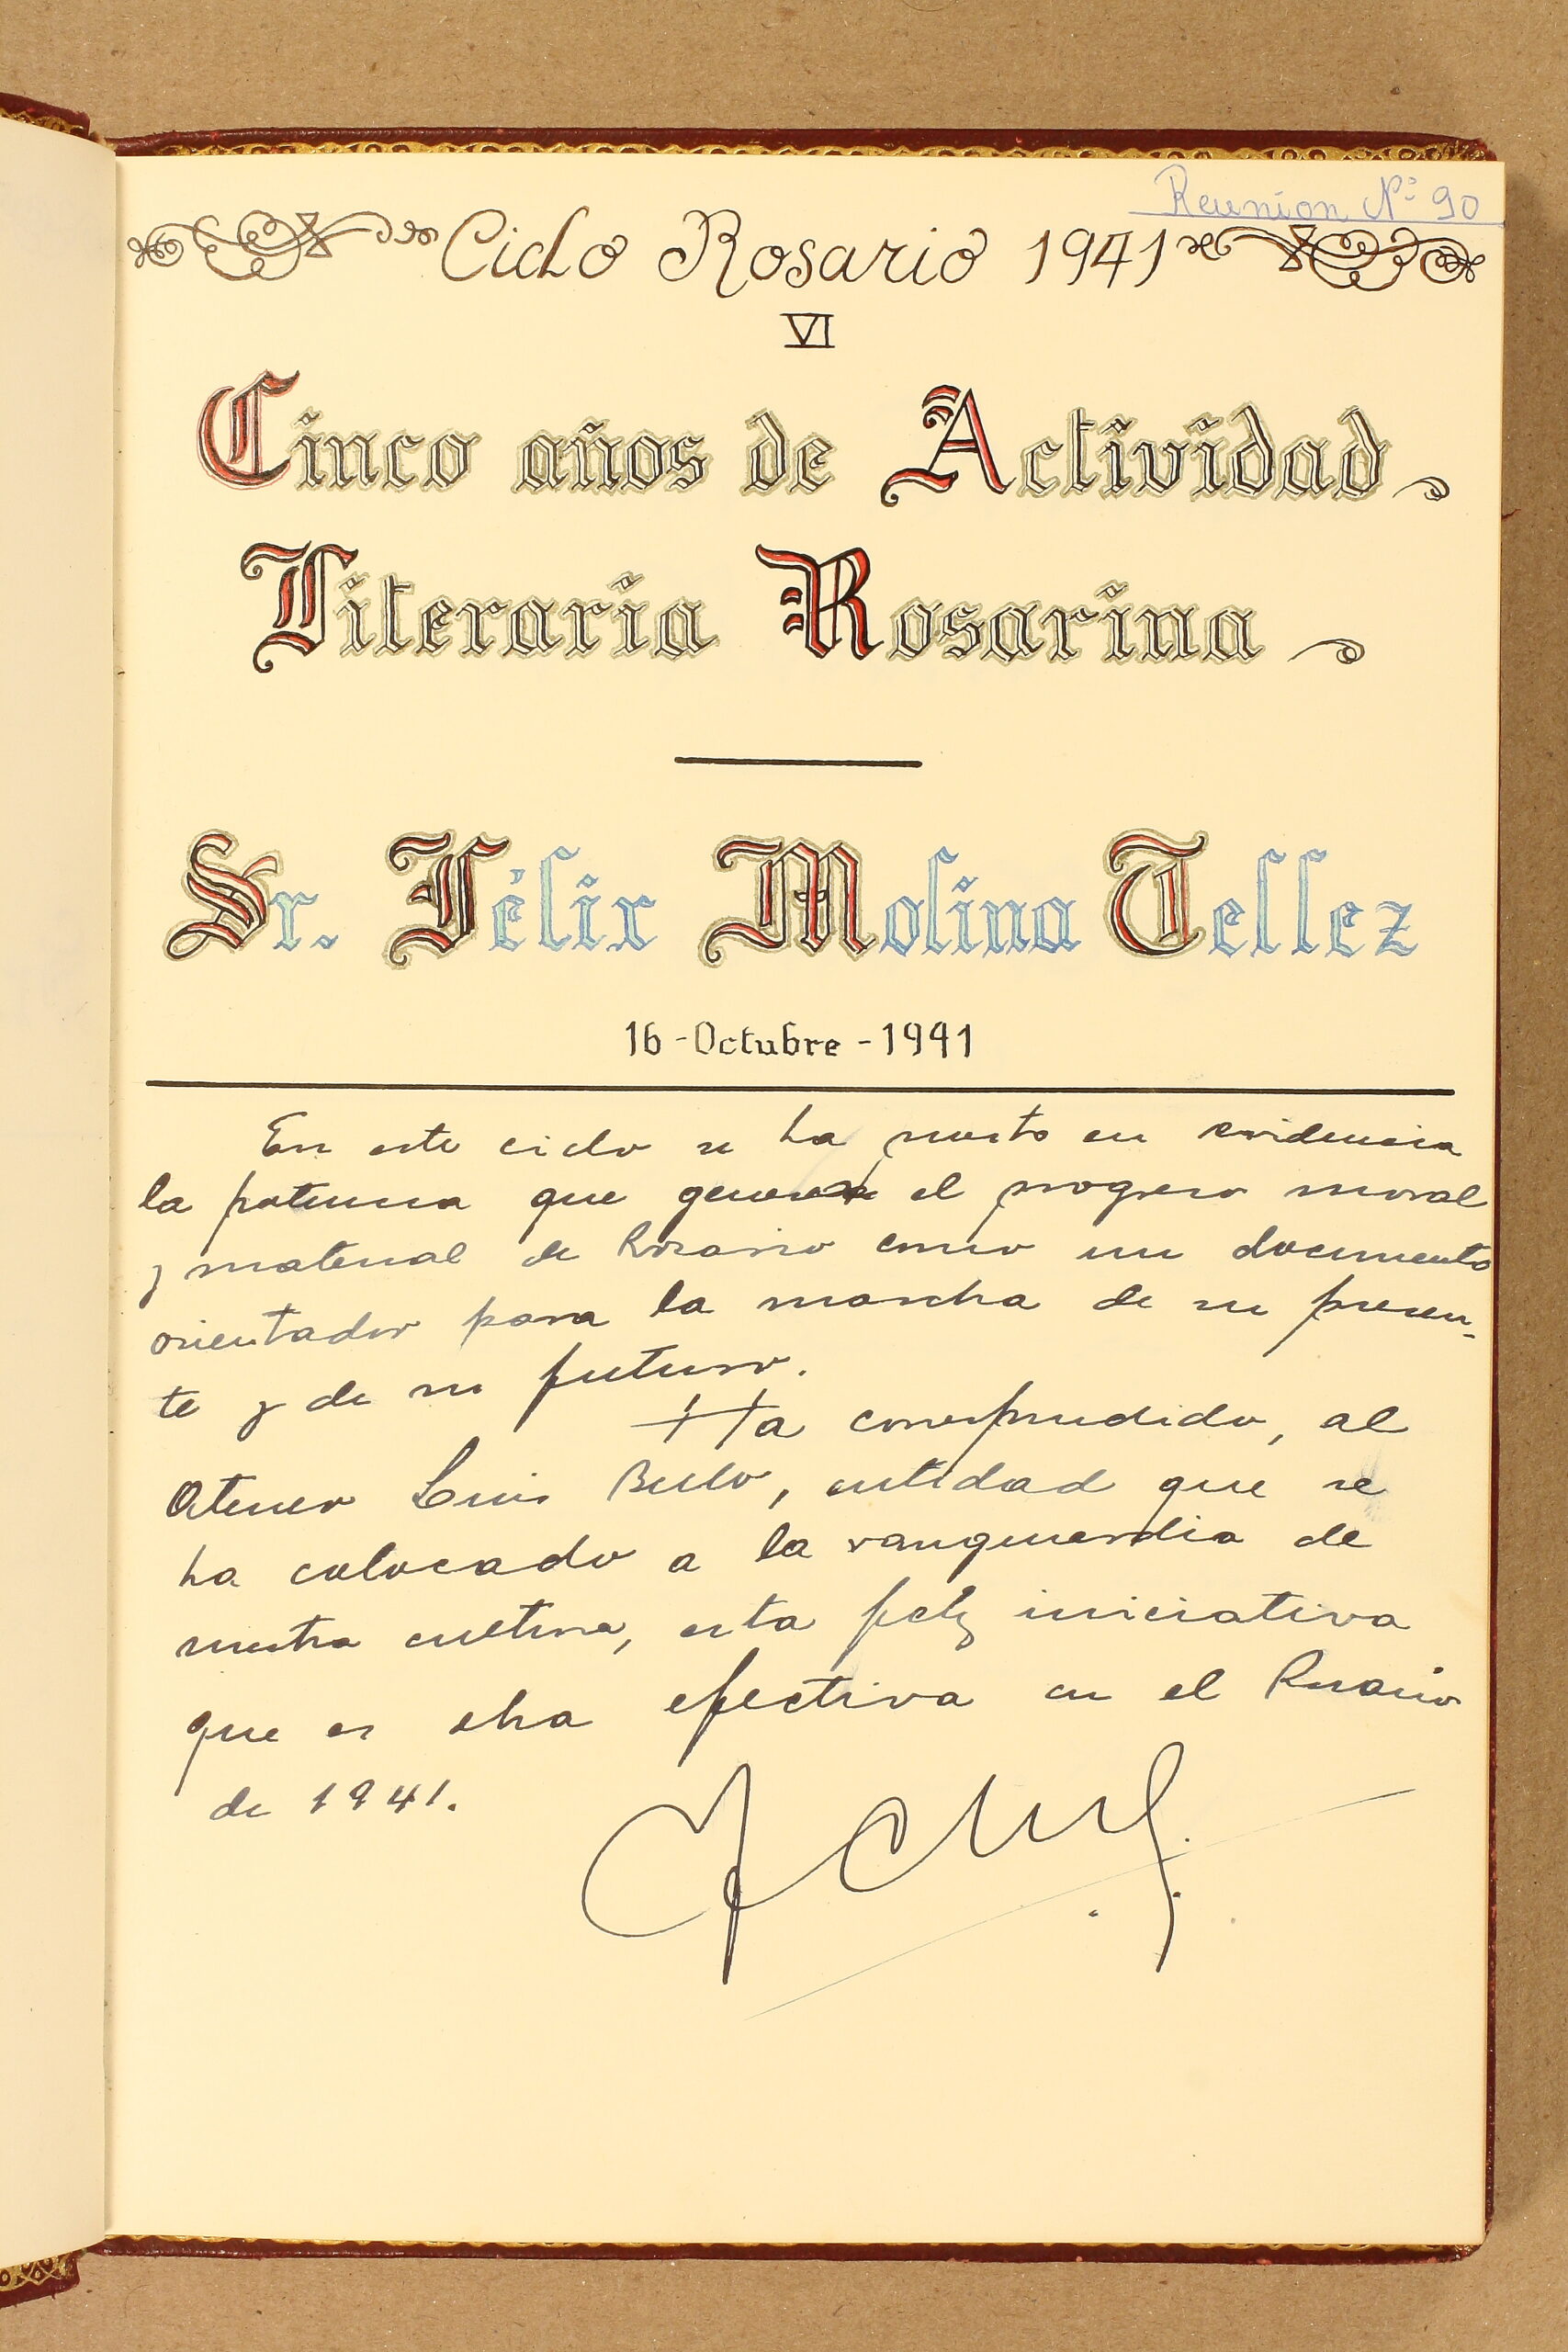 Reunion Nº 90
Ciclo Rosario 1941
VI
Cinco años de Actividad
Literaria Rosarina
Sr. Félix Molina Tellez
16-Octubre-1941
En este ciclo se ha puesto en evidencia
la potencia que genera el progreso moral
y material de Rosario como un documento
orientador para la marcha de su presen-
te y de su futuro.
Ha correspondido, al
Ateneo Luis Bello, entidad que se
ha colocado a la vanguardia de
nuestra cultura, esta feliz iniciativa
que es obra efectiva en el Rosario
de 1941.